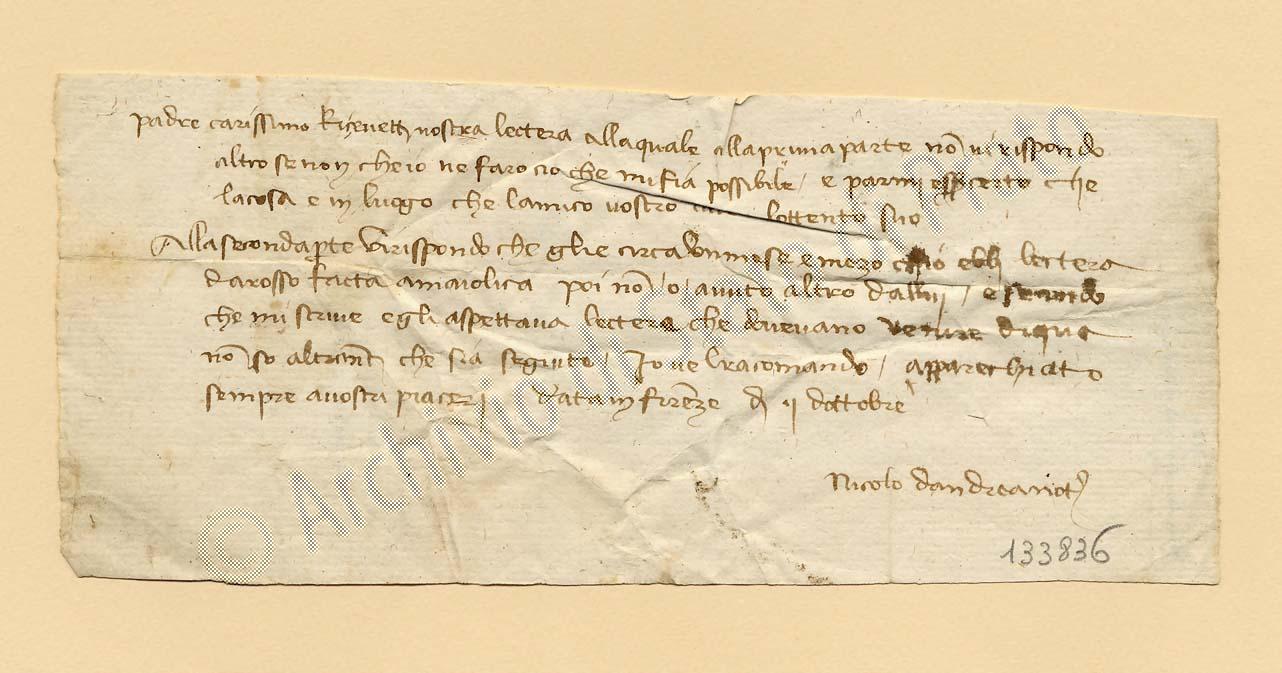 padre carissimo Ricevetti vostra lectera alla quale alla prima parte nō vi rispondo
altro se non che io ne faro cio che mi fia possibile / e parmi esser certo che
la cosa e in luogo che lamico vostro lottento suo
Alla seconda pte vi rispondo che glie circa dun mese e mezo chio ebbi lectera
da rosso facta a maiolica poi nō o avuto altro dallui / e secondo
che mi scrive egli aspettava lectera che devevano venire di qua
nō so altrimti che sia seguito / Io ve lracomando / apparechiato
sempre a vostri piaceri Data in firenze dì ij dottobre
Nicolo dandrea not
133836
© Archivio di Stato di Prato